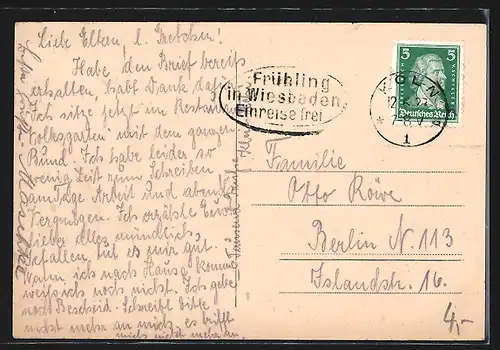 Liebe Eltern, l. Gretchen!
Habe den Brief bereits
erhalten, habt Dank dafür
Ich sitze jetzt im Restau
Volksgarten mit dem ganzen
Bund. Ich habe leider so
wenig Zeit zum Schreiben
am Tage Arbeit und abends
Vergnügen. Ich erzähle Euch
lieber alles mündlich,
Gefallen tut es mir gut.
Wann ich nach Hause komme
weiß ich noch nicht. Ich gebe
noch Bescheid. Schreibt bitte
nicht mehr an mich es trifft
mich nicht mehr an.
Tausend Grüße
Frühling
in Wiesbaden,
Einreise frei
KÖLN
12.5.27
7-8 V
1
5 5
Deutsches Reich
Familie
Otto Röwe
Berlin N. 113
Islandstr. 16.
4,-